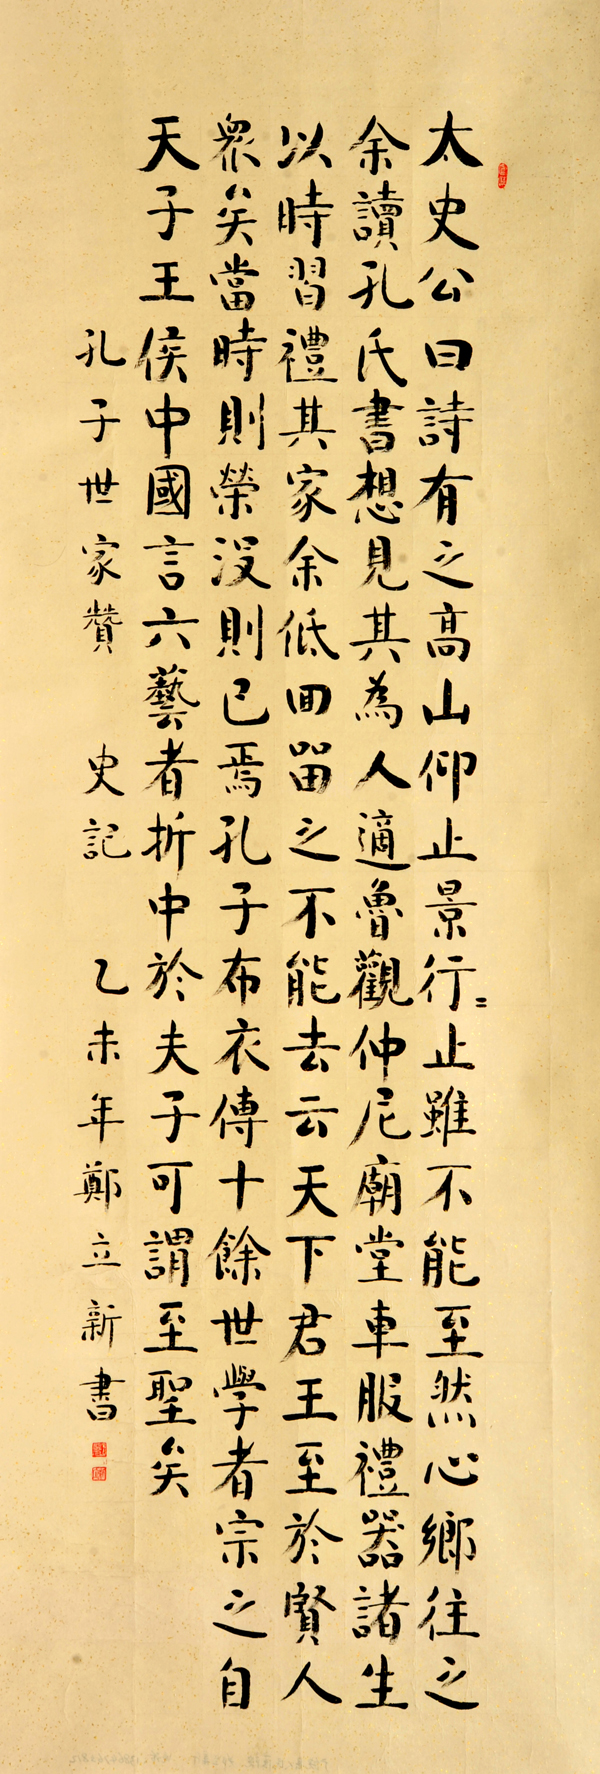 太史公曰詩有之高山仰止景行〻止雖不能至然心鄉往之
余讀孔氏書想見其為人適魯觀仲尼廟堂車服禮器諸生
以時習禮其家余低回留之不能去云天下君王至於賢人
眾矣當時則榮沒則已焉孔子布衣傳十餘世學者宗之自
天子王侯中國言六藝者折中於夫子可謂至聖矣
孔子世家贊 史記 乙未年鄭立新書